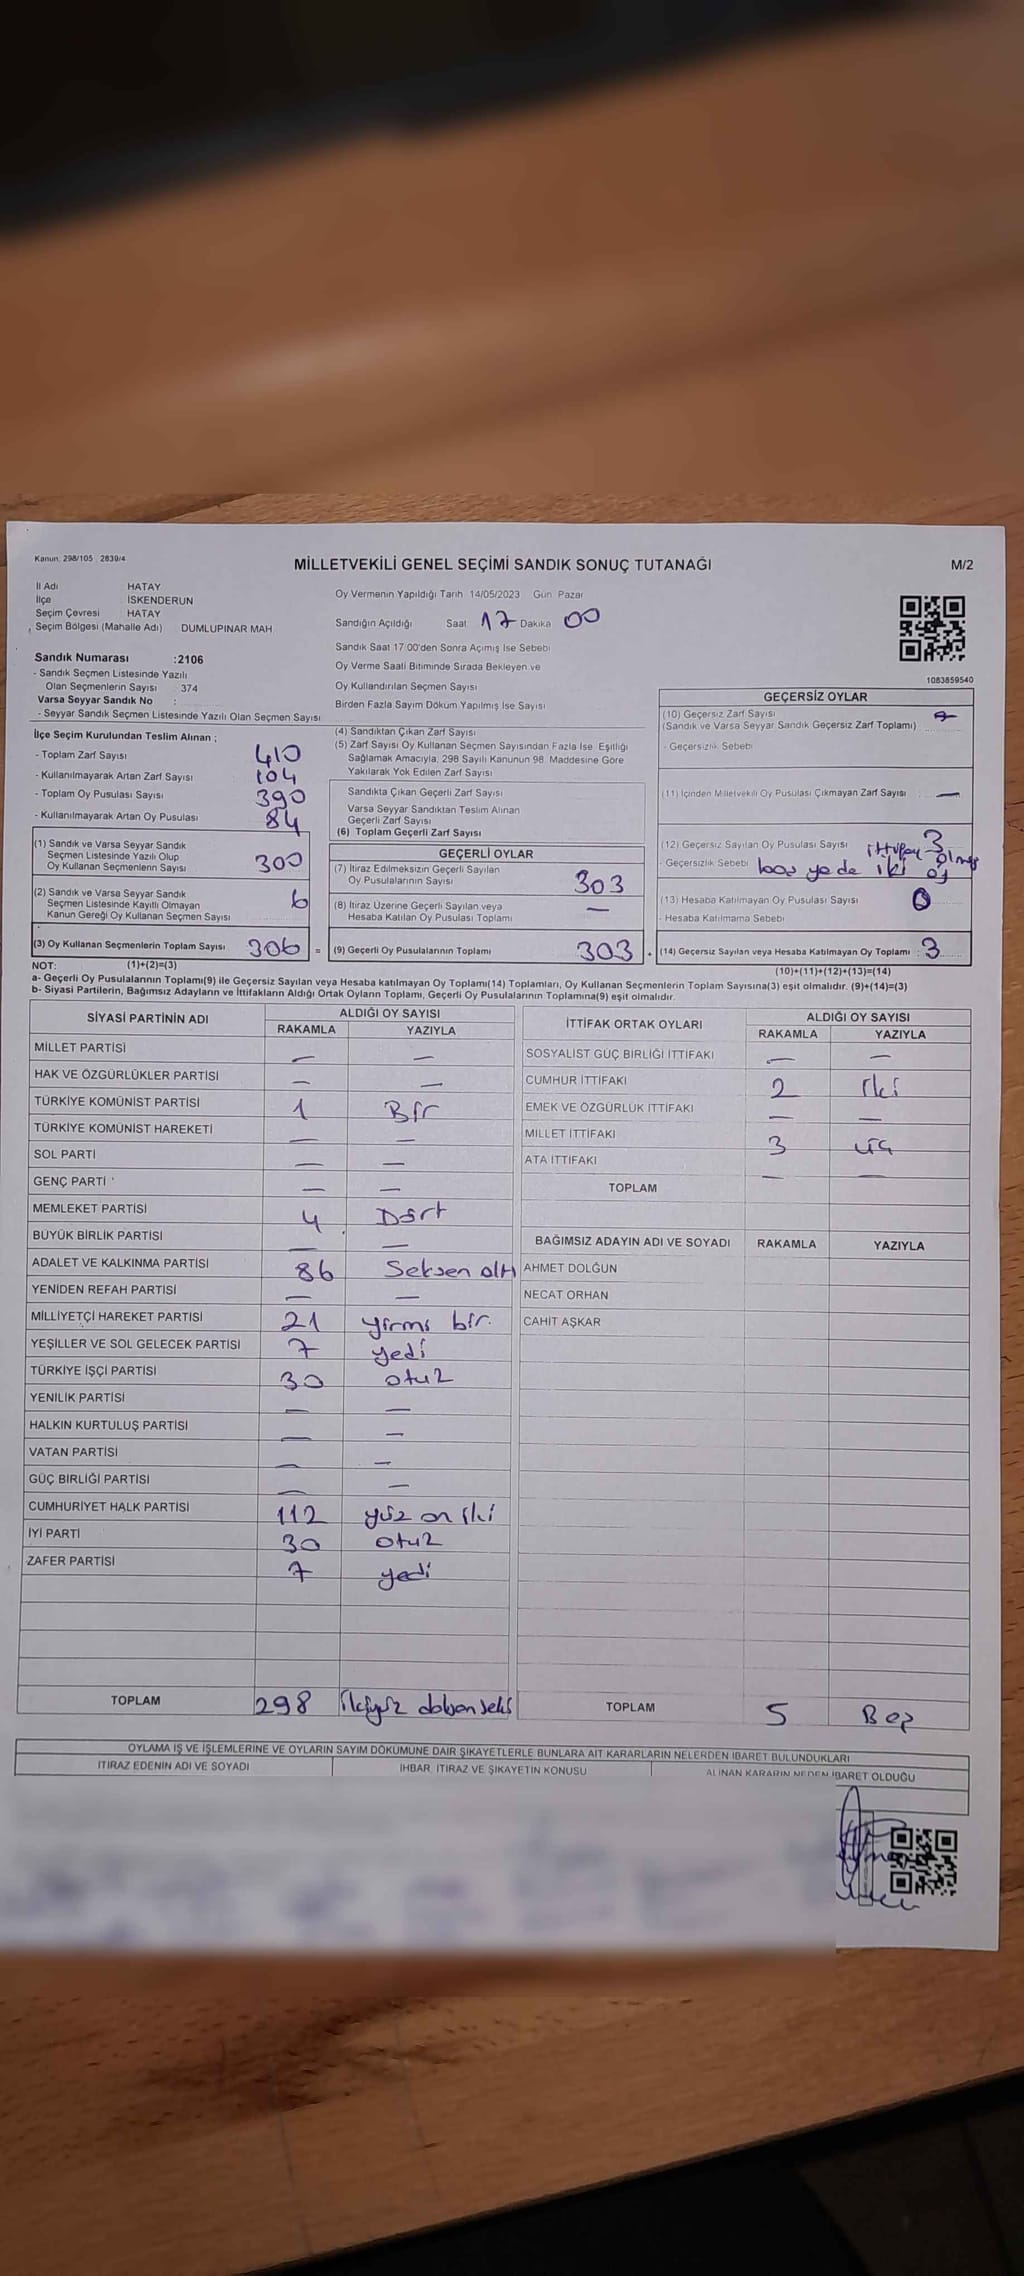 Kanun: 298/105 2839/4
MİLLETVEKİLİ GENEL SEÇİMİ SANDIK SONUÇ TUTANAĞI
M/2
İl Adı HATAY
İlçe İSKENDERUN
Seçim Çevresi HATAY
Seçim Bölgesi (Mahalle Adı) DUMLUPINAR MAH.
Sandık Numarası :2106
- Sandık Seçmen Listesinde Yazılı
Olan Seçmenlerin Sayısı : 374
Varsa Seyyar Sandık No :
- Seyyar Sandık Seçmen Listesinde Yazılı Olan Seçmen Sayısı
Oy Vermenin Yapıldığı Tarih 14/05/2023 Gün Pazar
Sandığın Açıldığı Saat 17 Dakika 00
Sandık Saat 17:00'den Sonra Açımış İse Sebebi
Oy Verme Saati Bitiminde Sırada Bekleyen ve
Oy Kullandırılan Seçmen Sayısı
Birden Fazla Sayım Döküm Yapılmış İse Sayısı
1083859540
İlçe Seçim Kurulundan Teslim Alınan ;
- Toplam Zarf Sayısı 410
- Kullanılmayarak Artan Zarf Sayısı 104
- Toplam Oy Pusulası Sayısı 390
- Kullanılmayarak Artan Oy Pusulası 84
(1) Sandık ve Varsa Seyyar Sandık
Seçmen Listesinde Yazılı Olup
Oy Kullanan Seçmenlerin Sayısı 300
(2) Sandık ve Varsa Seyyar Sandık
Seçmen Listesinde Kayıtlı Olmayan
Kanun Gereği Oy Kullanan Seçmen Sayısı 6
(3) Oy Kullanan Seçmenlerin Toplam Sayısı 306 =
(4) Sandıktan Çıkan Zarf Sayısı
(5) Zarf Sayısı Oy Kullanan Seçmen Sayısından Fazla İse Eşitliği
Sağlamak Amacıyla, 298 Sayılı Kanunun 98. Maddesine Göre
Yakılarak Yok Edilen Zarf Sayısı
Sandıkta Çıkan Geçerli Zarf Sayısı
Varsa Seyyar Sandıktan Teslim Alınan
Geçerli Zarf Sayısı
(6) Toplam Geçerli Zarf Sayısı
GEÇERLİ OYLAR
(7) İtiraz Edilmeksizin Geçerli Sayılan
Oy Pusulalarının Sayısı 303
(8) İtiraz Üzerine Geçerli Sayılan veya
Hesaba Katılan Oy Pusulası Toplamı —
(9) Geçerli Oy Pusulalarının Toplamı 303
GEÇERSİZ OYLAR
(10) Geçersiz Zarf Sayısı
(Sandık ve Varsa Seyyar Sandık Geçersiz Zarf Toplamı)
- Geçersizlik Sebebi
(11) İçinden Milletvekili Oy Pusulası Çıkmayan Zarf Sayısı : —
(12) Geçersiz Sayılan Oy Pusulası Sayısı 3
- Geçersizlik Sebebi boş ya da iki oy
(13) Hesaba Katılmayan Oy Pusulası Sayısı 0
- Hesaba Katılmama Sebebi
(14) Geçersiz Sayılan veya Hesaba Katılmayan Oy Toplamı : 3
NOT: (1)+(2)=(3)
(10)+(11)+(12)+(13)=(14)
a- Geçerli Oy Pusulalarının Toplamı(9) ile Geçersiz Sayılan veya Hesaba katılmayan Oy Toplamı(14) Toplamları, Oy Kullanan Seçmenlerin Toplam Sayısına(3) eşit olmalıdır. (9)+(14)=(3)
b- Siyasi Partilerin, Bağımsız Adayların ve İttifakların Aldığı Ortak Oyların Toplamı, Geçerli Oy Pusulalarının Toplamına(9) eşit olmalıdır.
SİYASİ PARTİNİN ADI
ALDIĞI OY SAYISI
RAKAMLA YAZIYLA
MİLLET PARTİSİ — —
HAK VE ÖZGÜRLÜKLER PARTİSİ — —
TÜRKİYE KOMÜNİST PARTİSİ 1 Bir
TÜRKİYE KOMÜNİST HAREKETİ — —
SOL PARTİ — —
GENÇ PARTİ — —
MEMLEKET PARTİSİ 4 Dört
BÜYÜK BİRLİK PARTİSİ — —
ADALET VE KALKINMA PARTİSİ 86 Seksen altı
YENİDEN REFAH PARTİSİ — —
MİLLİYETÇİ HAREKET PARTİSİ 21 yirmi bir.
YEŞİLLER VE SOL GELECEK PARTİSİ 7 yedi
TÜRKİYE İŞÇİ PARTİSİ 30 otuz
YENİLİK PARTİSİ — —
HALKIN KURTULUŞ PARTİSİ — —
VATAN PARTİSİ — —
GÜÇ BİRLİĞİ PARTİSİ — —
CUMHURİYET HALK PARTİSİ 112 yüz on iki
İYİ PARTİ 30 otuz
ZAFER PARTİSİ 7 yedi
TOPLAM 298 ikiyüz doksan seki
İTTİFAK ORTAK OYLARI
ALDIĞI OY SAYISI
RAKAMLA YAZIYLA
SOSYALİST GÜÇ BİRLİĞİ İTTİFAKI — —
CUMHUR İTTİFAKI 2 iki
EMEK VE ÖZGÜRLÜK İTTİFAKI — —
MİLLET İTTİFAKI 3 üç
ATA İTTİFAKI — —
TOPLAM
BAĞIMSIZ ADAYIN ADI VE SOYADI RAKAMLA YAZIYLA
AHMET DOLĞUN
NECAT ORHAN
CAHİT AŞKAR
TOPLAM 5 Beş
OYLAMA İŞ VE İŞLEMLERİNE VE OYLARIN SAYIM DÖKÜMÜNE DAİR ŞİKAYETLERLE BUNLARA AİT KARARLARIN NELERDEN İBARET BULUNDUKLARI
İTİRAZ EDENİN ADI VE SOYADI
İHBAR, İTİRAZ VE ŞİKAYETİN KONUSU
ALINAN KARARIN NEDEN İBARET OLDUĞU